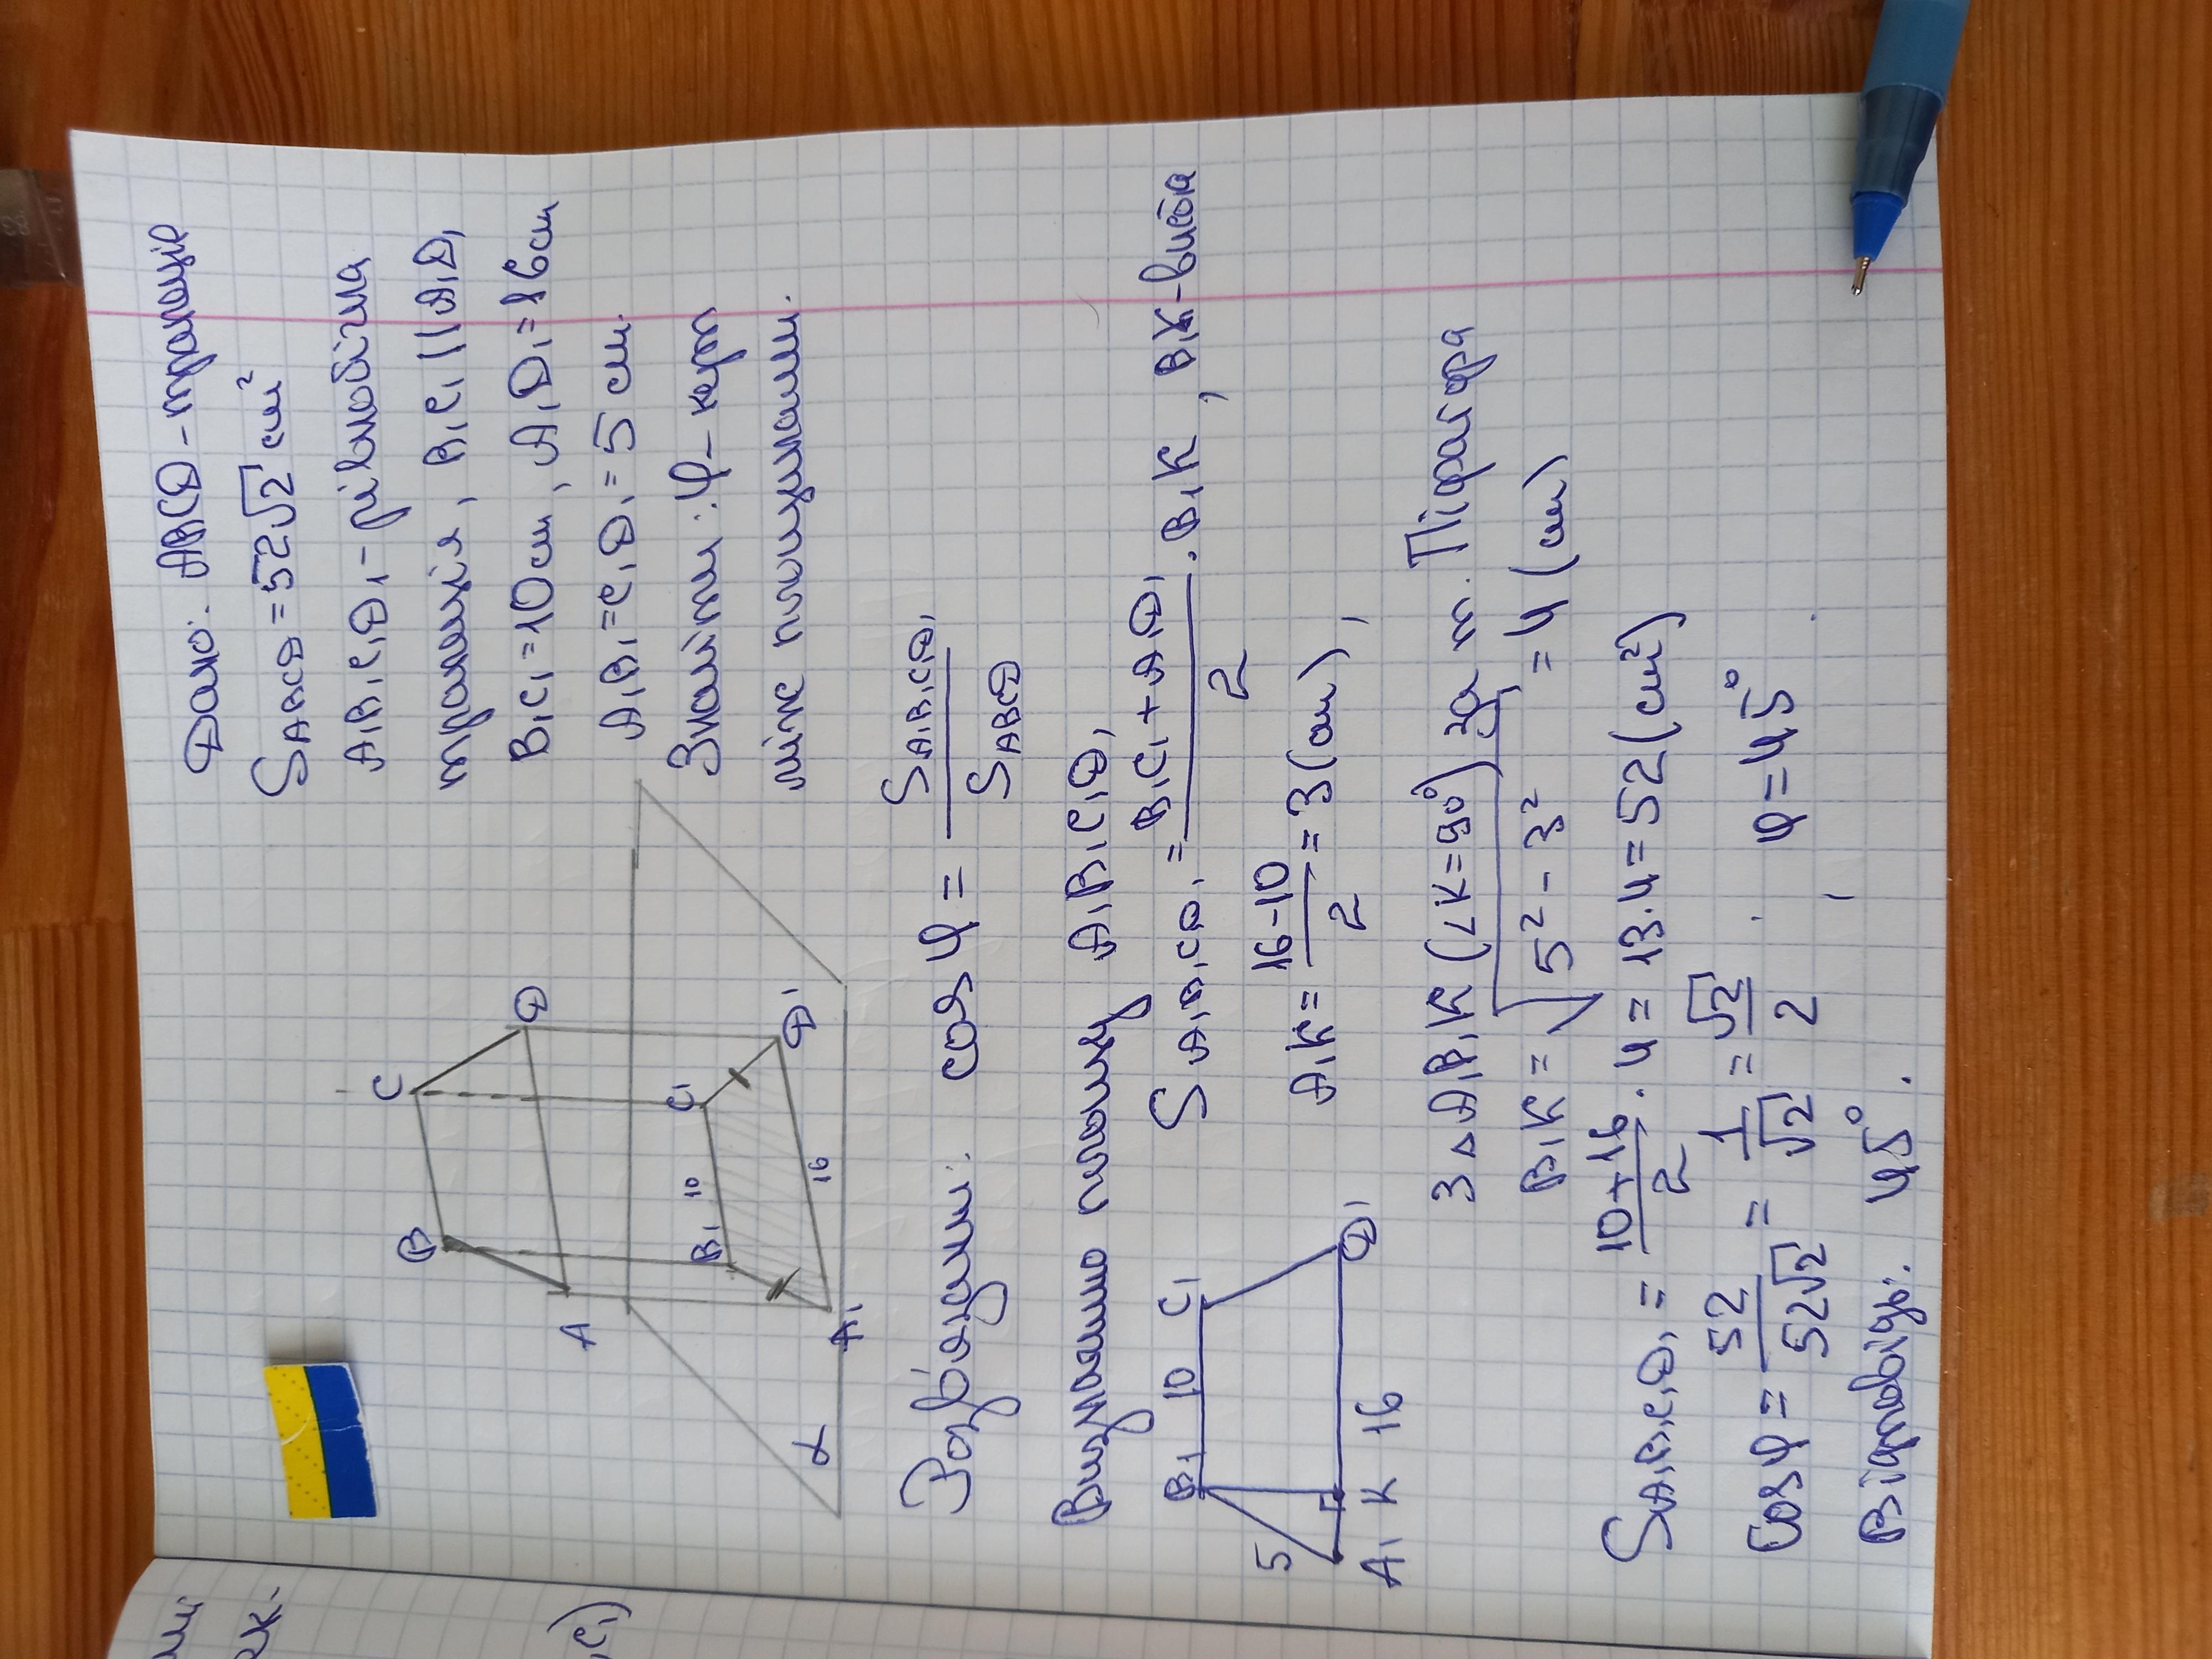 Дано: ABCD - трапеція
S ABCD = 52√2 см²
A₁B₁C₁D₁ - рівнобічна
трапеція, B₁C₁ || A₁D₁
B₁C₁ = 10см, A₁D₁ = 16см
A₁B₁ = C₁D₁ = 5 см.
Знайти: φ - кут
між площинами.
B
C
A
D
B₁
10
C₁
A₁
16
D₁
α
Розв'язання: cos φ = S A₁B₁C₁D₁ / S ABCD
Вищукаємо площу A₁B₁C₁D₁
B₁ 10 C₁
5
A₁ K 16 D₁
S A₁B₁C₁D₁ = (B₁C₁ + A₁D₁) / 2 · B₁K, B₁K - висота
A₁K = (16 - 10) / 2 = 3 (см),
З △ A₁B₁K (∠K = 90°) за т. Піфагора
B₁K = √(5² - 3²) = 4 (см)
S A₁B₁C₁D₁ = (10 + 16) / 2 · 4 = 13 · 4 = 52 (см²)
cos φ = 52 / 52√2 = 1 / √2 = √2 / 2, φ = 45°
Відповідь: 45°.